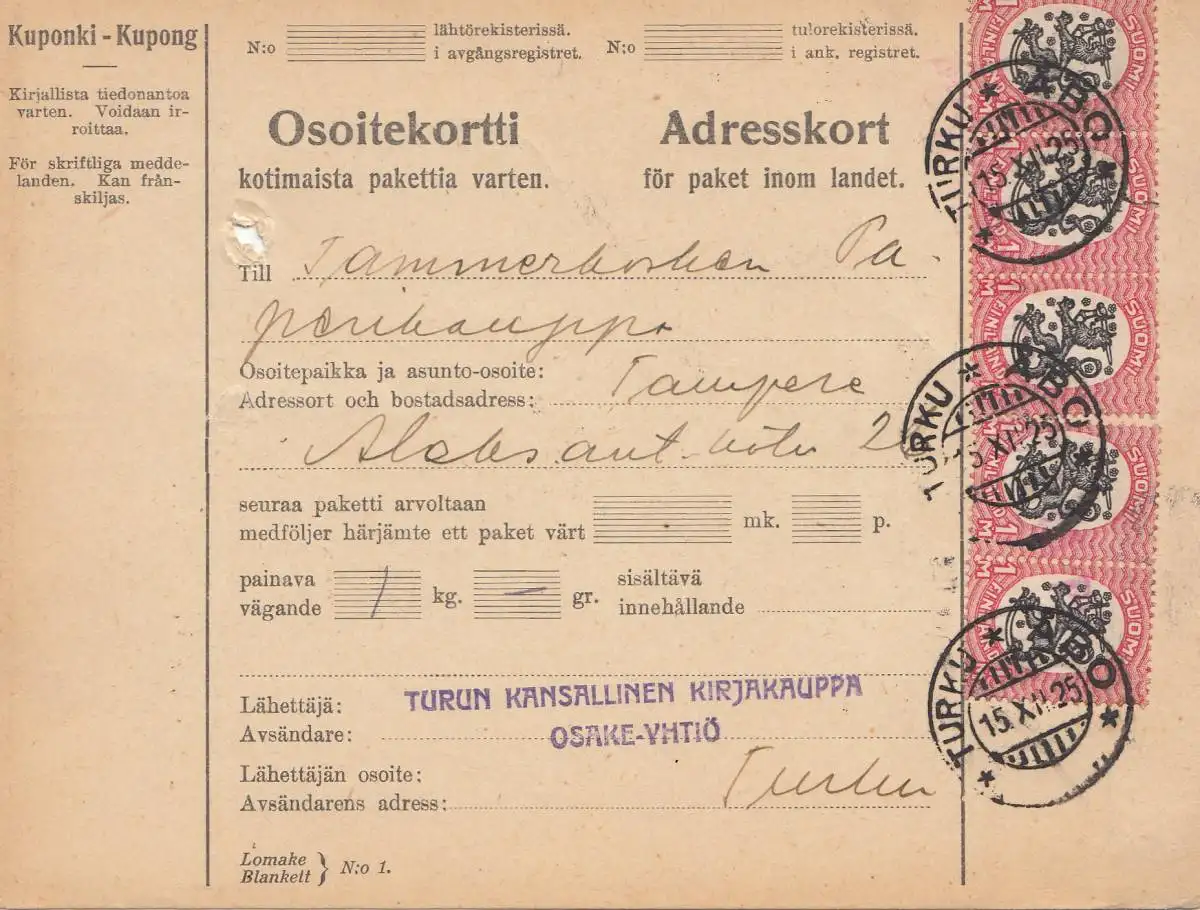 Kuponki - Kupong
Kirjallista tiedonantoa
varten. Voidaan ir-
roittaa.
För skriftliga medde-
landen. Kan från-
skiljas.
N:o lähtörekisterissä.
i avgångsregistret.
N:o tulorekisterissä.
i ank. registret.
Osoitekortti
kotimaista pakettia varten.
Adresskort
för paket inom landet.
Till Tammerkosken Pa
perikauppa
Osoitepaikka ja asunto-osoite:
Adressort och bostadsadress: Tampere
seuraa paketti arvoltaan
medföljer härjämte ett paket värt mk. p.
painava
vägande 1 kg. — gr.
sisältävä
innehållande
Lähettäjä:
Avsändare:
TURUN KANSALLINEN KIRJAKAUPPA
OSAKE-YHTIÖ
Lähettäjän osoite:
Avsändarens adress: Turku
Lomake
Blankett } N:o 1.
SUOMI
SUOMI
SUOMI
SUOMI
SUOMI
TURKU * ÅBO *
15.XII.25
TURKU * ÅBO
TURKU * ÅBO *
15.XII.25